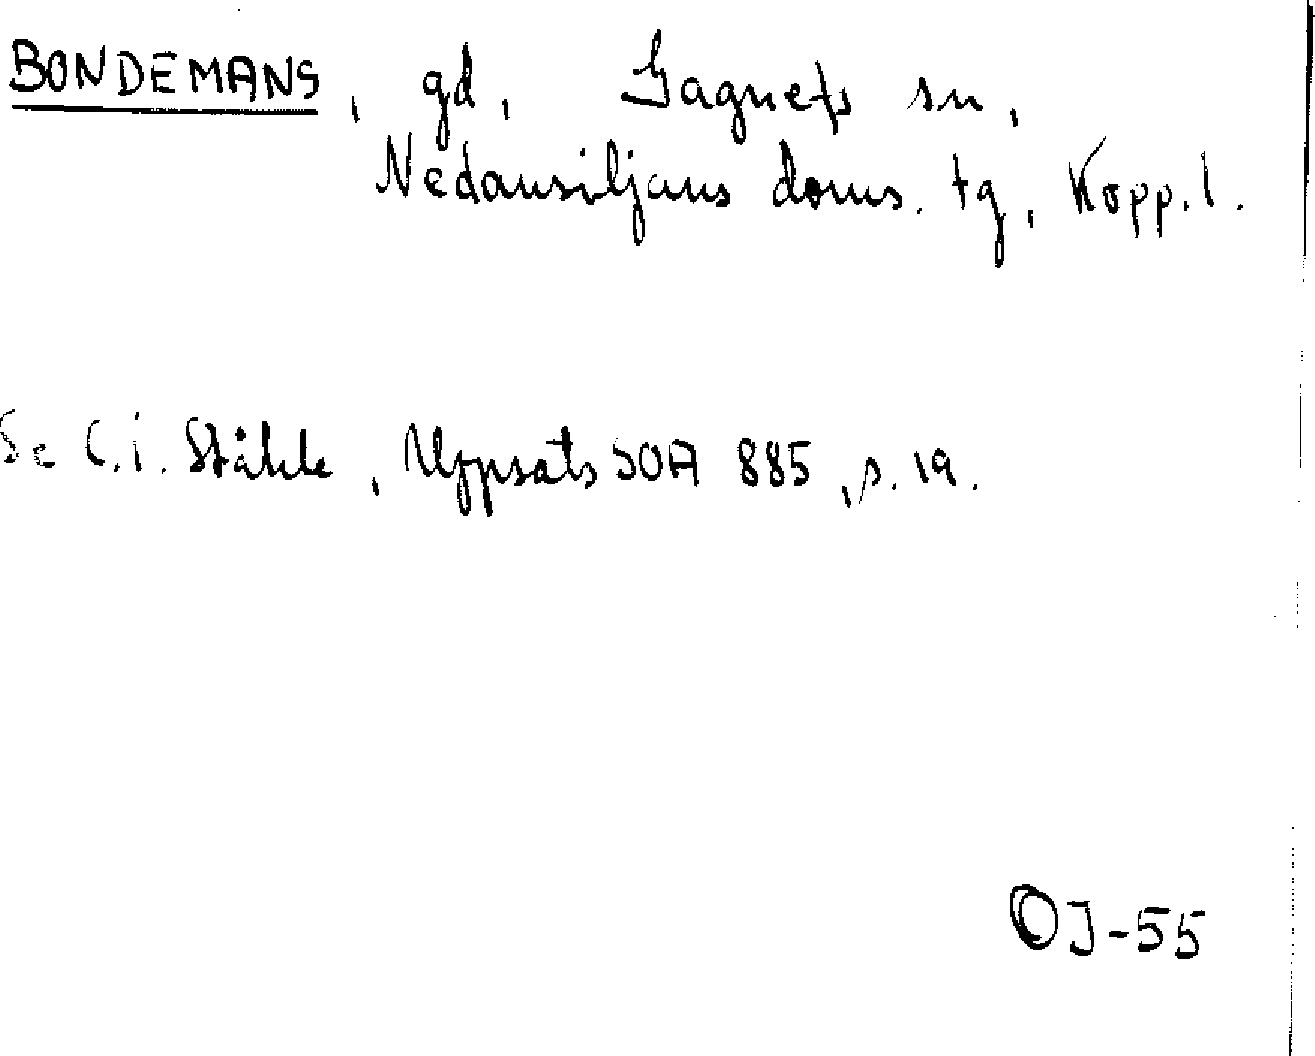 BONDEMANS, gd, Gagnefs sn,
Nedansiljans doms. tg, Kopp. l.
Se C.I. Ståhle, Uppsats SOA 885, s. 19.
OJ-55